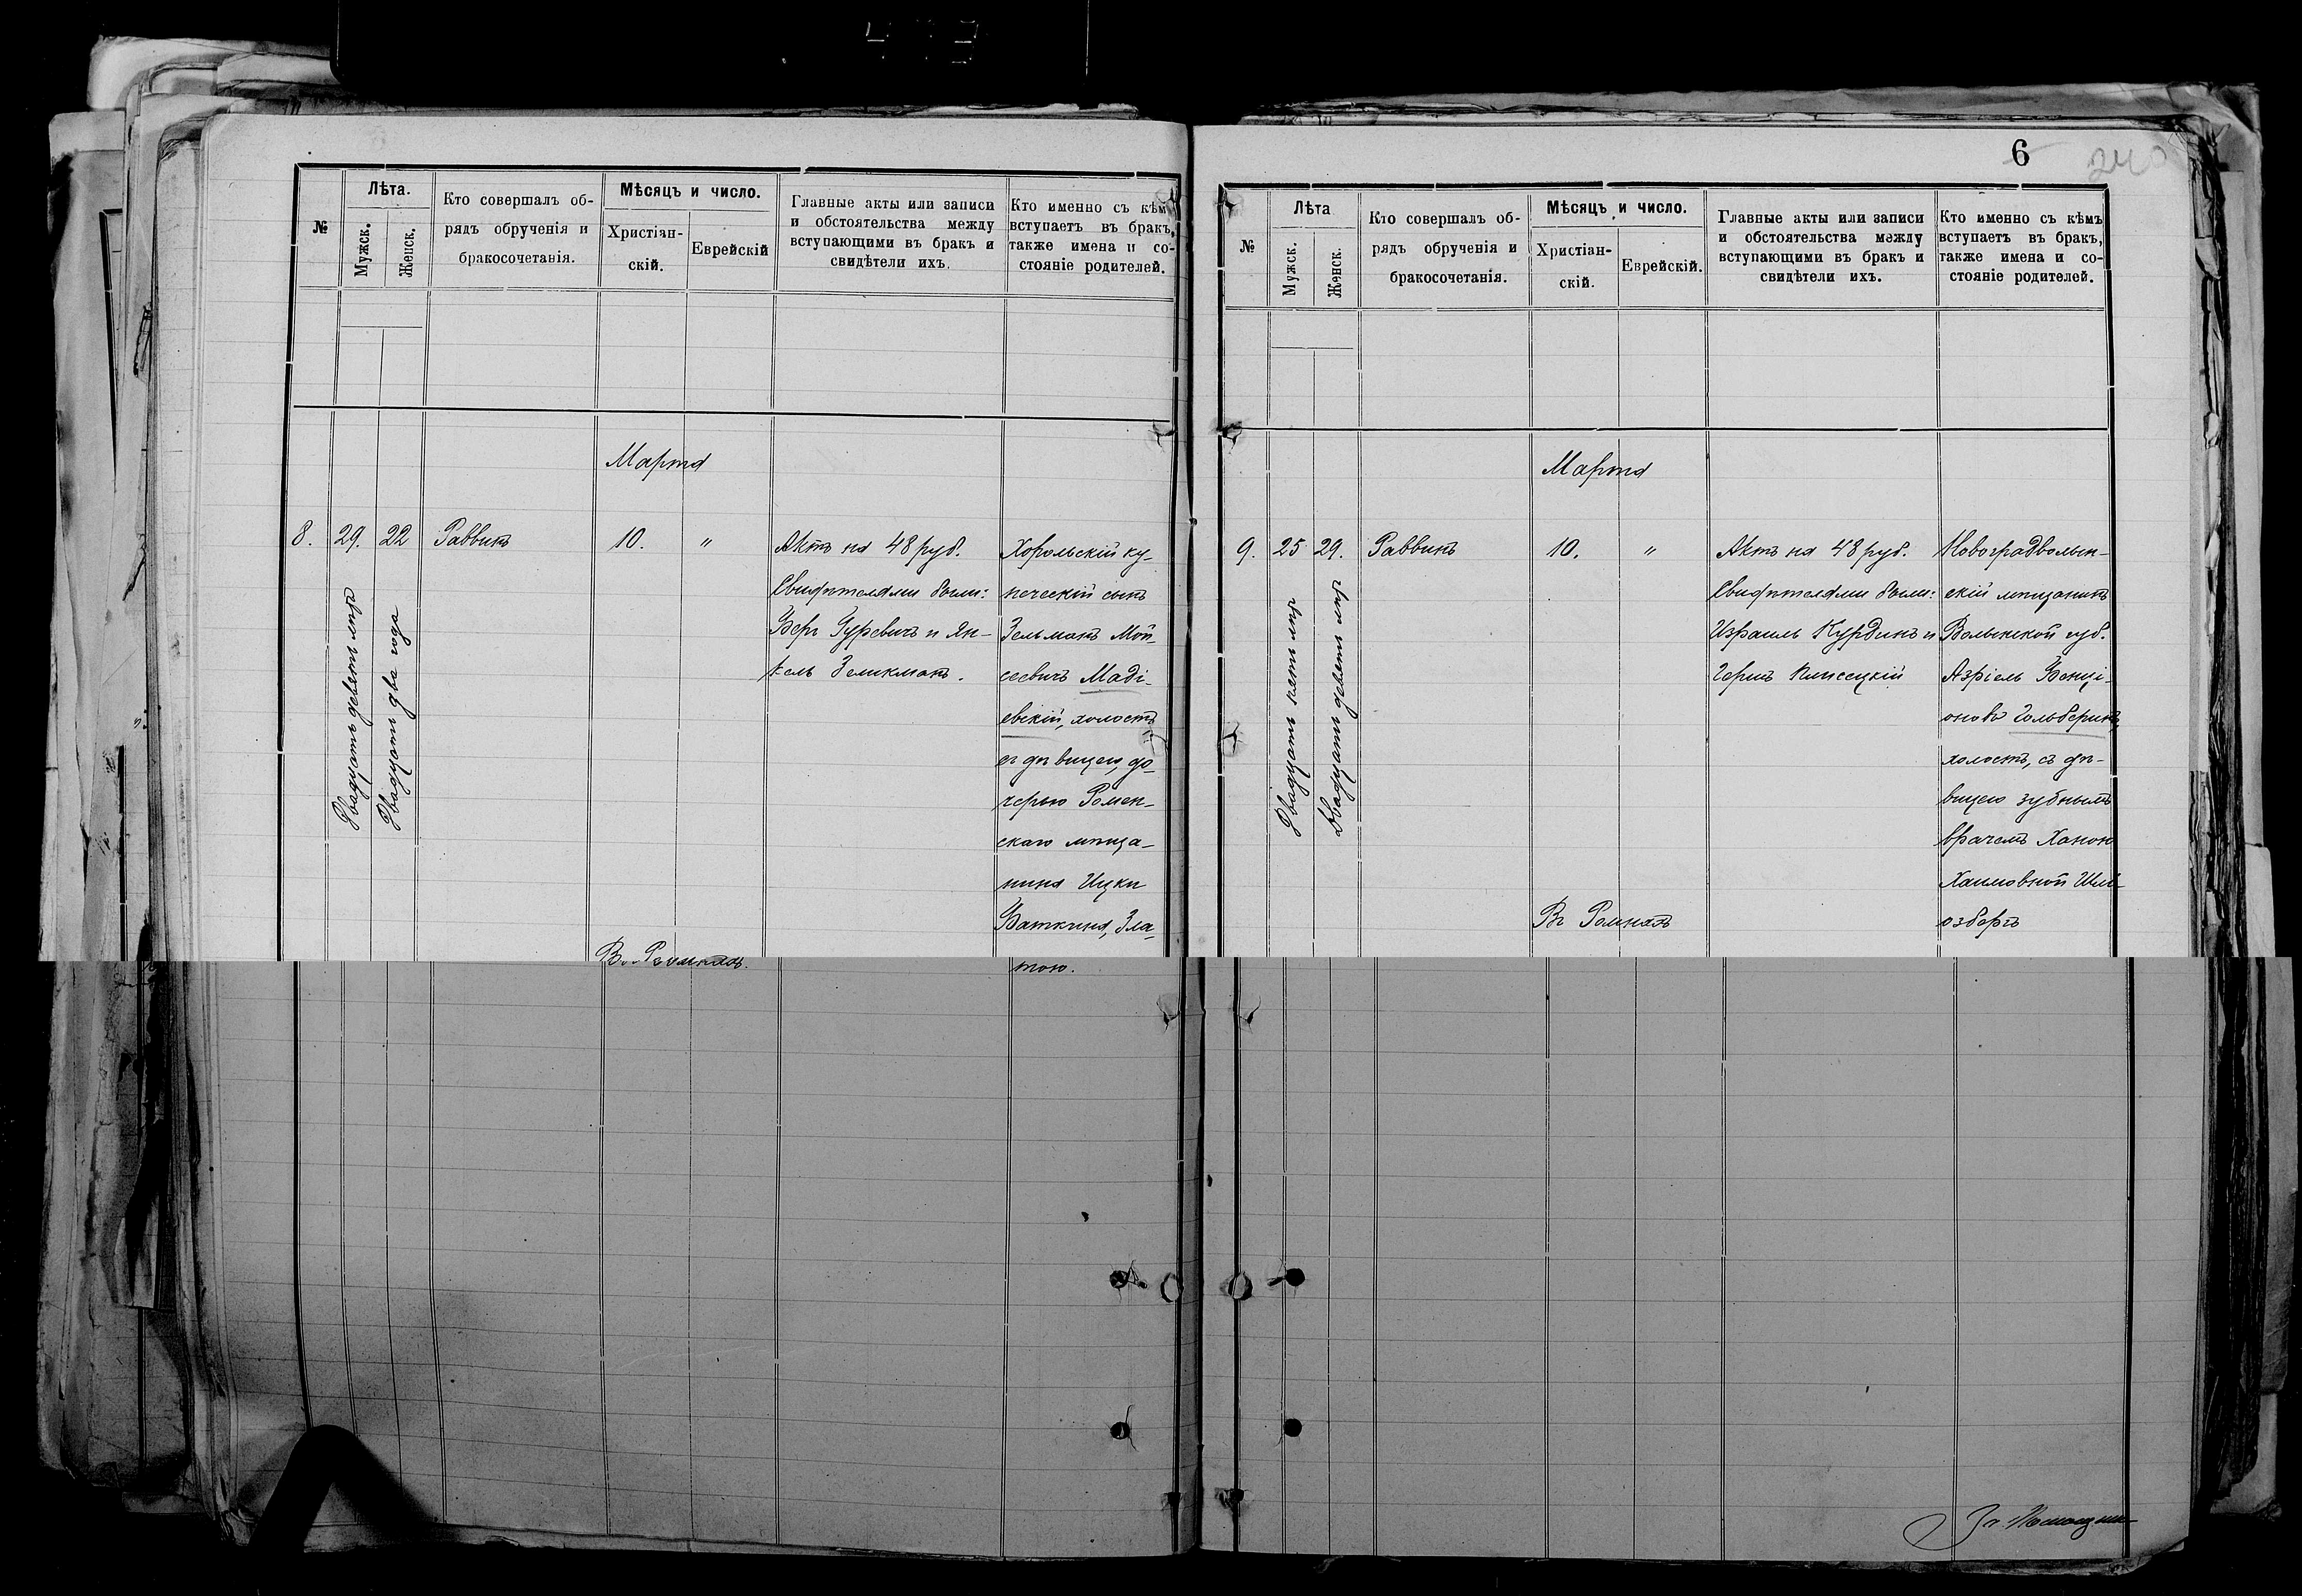 №
Лѣта.
Мужск.
Женск.
Кто совершалъ об-
рядъ обрученія и
бракосочетанія.
Мѣсяцъ и число.
Христіан-
скій.
Еврейскій
Главные акты или записи
и обстоятельства между
вступающими въ бракъ и
свидѣтели ихъ.
Кто именно съ кѣмъ
вступаетъ въ бракъ,
также имена и со-
стояніе родителей.
Марта
8.
29.
Двадцать девять лѣтъ
22
Двадцать два года
Раввинъ
10.
"
Актъ на 48 руб.
Свидѣтелями были:
Беръ Гуревичъ и Ян-
кель Зеликманъ.
Хорольскій ку-
печескій сынъ
Зельманъ Мой-
сеевичъ Маді-
евскій, холостъ
съ дѣвицею, до-
черью Ромен-
скаго мѣща-
нина Ицки
Баткина, Зла-
тою.
Въ Ромнахъ.
6
240
№
Лѣта
Мужск.
Женск.
Кто совершалъ об-
рядъ обрученія и
бракосочетанія.
Мѣсяцъ и число.
Христіан-
скій.
Еврейскій.
Главные акты или записи
и обстоятельства между
вступающими въ бракъ и
свидѣтели ихъ.
Кто именно съ кѣмъ
вступаетъ въ бракъ,
также имена и со-
стояніе родителей.
Марта
9.
25
Двадцать пять лѣтъ
29.
Двадцать девять лѣтъ
Раввинъ
10.
"
Актъ на 48 руб.
Свидѣтелями были:
Израиль Курдинъ и
Герцъ
Новоградволын-
скій мѣщанинъ
Волынской губ.
Азріель Бенці-
оновъ Гольберинъ,
холостъ, съ дѣ-
вицею зубнымъ
врачемъ Ханою
Хаимовной
озбергъ
Въ Ромнахъ
За Помощни-